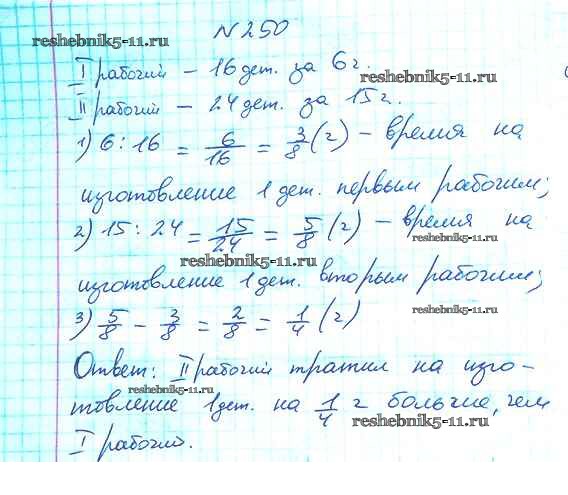 № 250
reshebnik5-11.ru
I рабочий – 16 дет. за 6 г.
reshebnik5-11.ru
II рабочий – 24 дет. за 15 г.
1) 6 : 16 = 6/16 = 3/8 (г) – время на
изготовление 1 дет. первым рабочим;
2) 15 : 24 = 15/24 = 5/8 (г) – время на
reshebnik5-11.ru
reshebnik5-11.ru
изготовление 1 дет. вторым рабочим;
3) 5/8 – 3/8 = 2/8 = 1/4 (г)
reshebnik5-11.ru
Ответ: II рабочий тратил на изго-
reshebnik5-11.ru
товление 1 дет. на 1/4 г больше, чем
reshebnik5-11.ru
I рабочий.